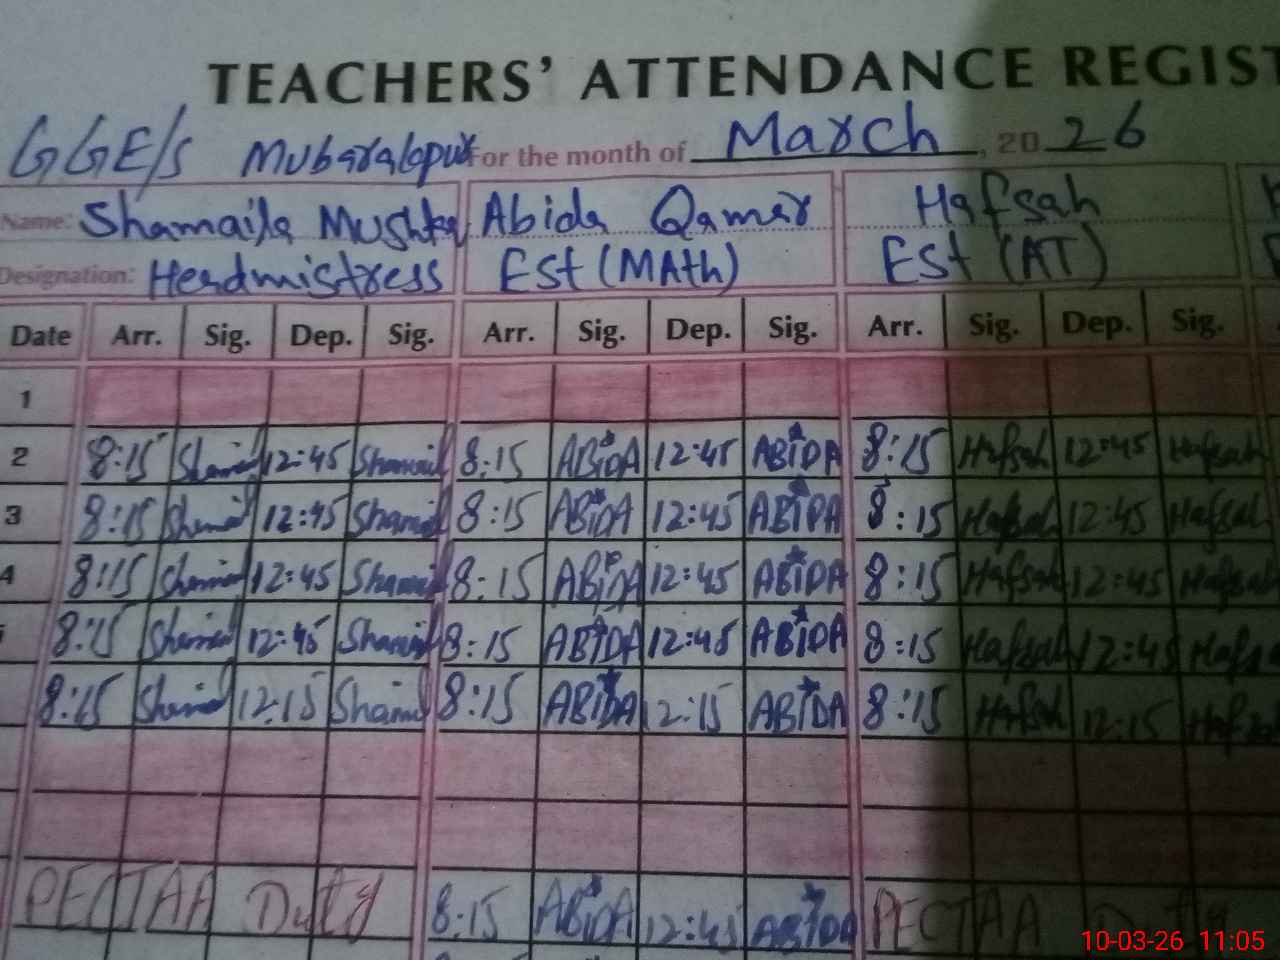 TEACHERS' ATTENDANCE REGIST
GGE/S Mubarakpur For the month of March, 2026
Name: Shamaila Mushta Abida Qamar Hafsah
Designation: Headmistress Est (MAth) ESt (AT)
Date Arr. Sig. Dep. Sig. Arr. Sig. Dep. Sig. Arr. Sig. Dep. Sig.
1
2 8:15 12:45 8:15 ABiDA 12:45 ABIDA 8:15 Hafsah 12:45 Hafsah
3 8:15 12:45 8:15 ABiDA 12:45 ABIDA 8:15 Hafsah 12:45 Hafsah
4 8:15 12:45 8:15 ABiDA 12:45 ABIDA 8:15 Hafsah 12:45 Hafsah
8:15 12:45 8:15 ABIDA 12:45 ABIDA 8:15 Hafsah 12:45 Hafs
8:15 12:15 8:15 ABIDA 12:15 ABIDA 8:15 Hafsah 12:15
PECTAA Duty 8:15 ABiDA 12:45 ABIDA PECTAA Duty
10-03-26 11:05